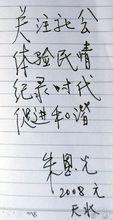 关注社会
体验民情
纪录时代
促进和谐
朱恩光
2008.元
天水